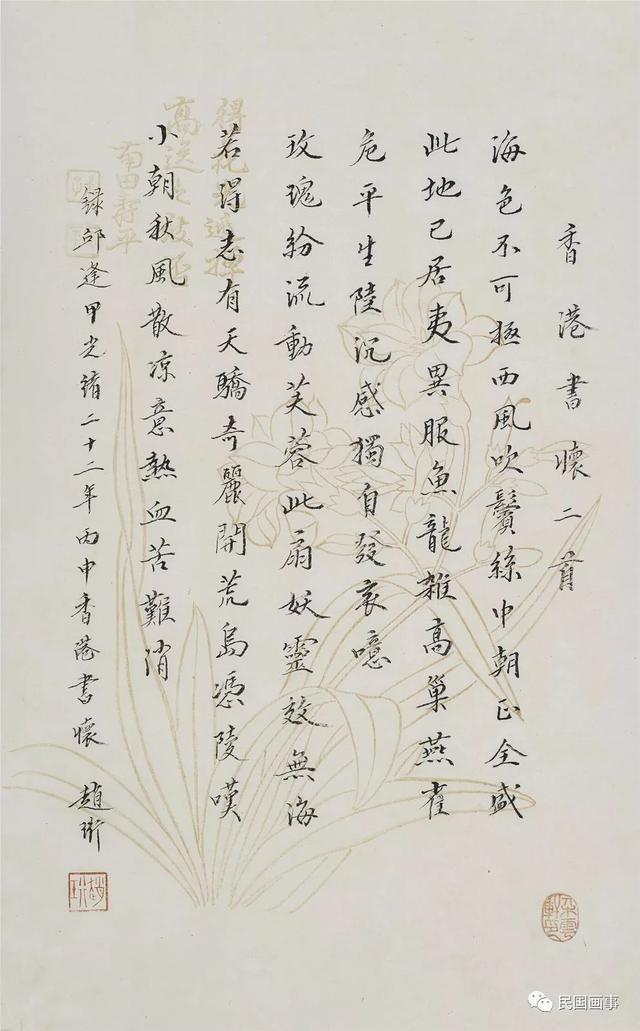 香港書懷二首
海色不可極西風吹鬢絲中朝正全盛
此地已居夷異服魚龍雜高巢燕雀
危平生陸沉感獨自發哀噫
玫瑰紛流動芙蓉此扇妖靈效無海
若得志有天驕奇麗開荒島憑陵嘆
小朝秋風散凉意熱血苦難消
錄邱逢甲光緒二十二年丙申香港書懷 趙珩
趙珩
南田壽平
民国画事